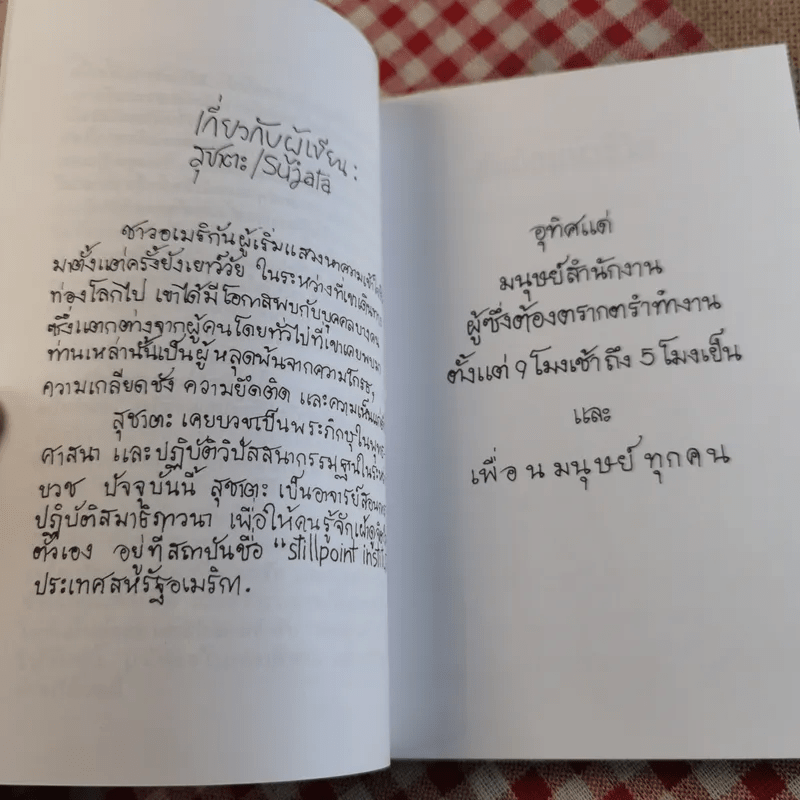 เกี่ยวกับผู้เขียน:
สุชาตะ/Sujata
ชาวอเมริกันผู้เริ่มแสวงหาความเข้าใจ
มาตั้งแต่ครั้งยังเยาว์วัย ในระหว่างที่เขาเดินทาง
ท่องโลกไป เขาได้มีโอกาสพบกับบุคคลบางคน
ซึ่งแตกต่างจากผู้คนโดยทั่วไปที่เขาเคยพบมา
ท่านเหล่านั้นเป็นผู้หลุดพ้นจากความโกรธ,
ความเกลียดชัง ความยึดติด และความเห็นแก่ตัว
สุชาตะ เคยบวชเป็นพระภิกษุในพุทธ
ศาสนา และปฏิบัติวิปัสสนากรรมฐานในระหว่าง
บวช ปัจจุบันนี้ สุชาตะ เป็นอาจารย์สอน
ปฏิบัติสมาธิภาวนา เพื่อให้คนรู้จักเฝ้า
ตัวเอง อยู่ที่สถาบันชื่อ "stillpoint
ประเทศสหรัฐอเมริกา.
อุทิศแด่
มนุษย์สำนักงาน
ผู้ซึ่งต้องตรากตรำทำงาน
ตั้งแต่ 9 โมงเช้า ถึง 5 โมงเย็น
และ
เพื่อนมนุษย์ทุกคน